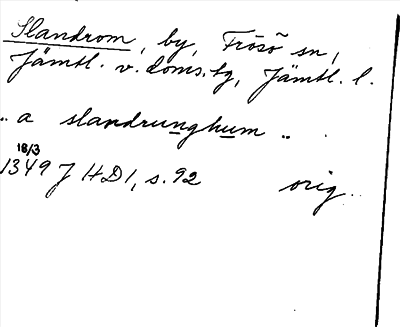 Slandrom, by, Frösö sn,
Jämtl. v. doms. tg, Jämtl. l.
„a slandrunghum„.
18/3
1349 J H D 1, s. 92 orig.